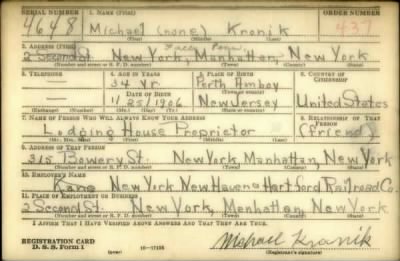 SERIAL NUMBER 1. NAME (Print) ORDER NUMBER
4648 Michael (none) Kronik 437
(First) (Middle) (Last)
2. ADDRESS (Print)
2 Second St. New York, Manhattan, New York
(Number and street or R. F. D. number) (Town) (County) (State)
3. TELEPHONE 4. AGE IN YEARS 5. PLACE OF BIRTH 6. COUNTRY OF CITIZENSHIP
34 Yr. Perth Amboy
DATE OF BIRTH (Town or county)
11/25/1906 New Jersey United States
(Exchange) (Number) (Mo.) (Day) (Yr.) (State or country)
7. NAME OF PERSON WHO WILL ALWAYS KNOW YOUR ADDRESS 8. RELATIONSHIP OF THAT PERSON
Lodging House Proprietor (friend)
(Mr., Mrs., Miss) (First) (Middle) (Last)
9. ADDRESS OF THAT PERSON
315 Bowery St. New York, Manhattan, New York
(Number and street or R. F. D. number) (Town) (County) (State)
10. EMPLOYER'S NAME
New York New Haven & Hartford Railroad Co.
11. PLACE OF EMPLOYMENT OR BUSINESS
2 Second St. New York, Manhattan, New York
(Number and street or R. F. D. number) (Town) (County) (State)
I AFFIRM THAT I HAVE VERIFIED ABOVE ANSWERS AND THAT THEY ARE TRUE.
REGISTRATION CARD
D. S. S. Form 1 (over) 16-17105 Michael Kronik
(Registrant's signature)